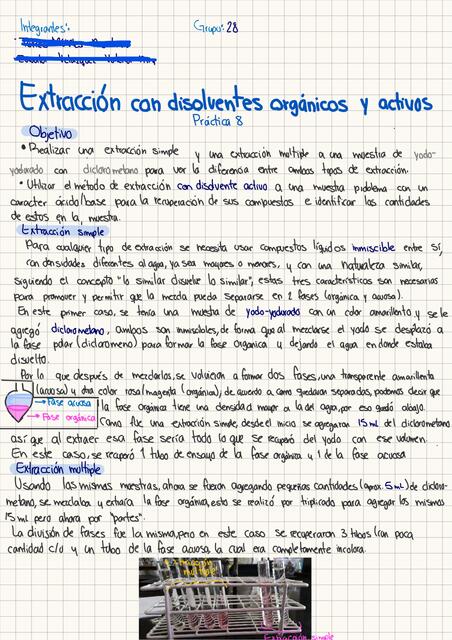 Integrantes:
Grupo: 28
Extracción con disolventes orgánicos y activos
Práctica 8
Objetivo
• Realizar una extracción simple y una extracción multiple a una muestra de yodo-
yodurado con diclorometano para ver la diferencia entre ambos tipos de extracción.
• Utilizar el método de extracción con disolvente activo a una muestra problema con un
caracter ácido/base para la recuperación de sus compuestos e identificar las cantidades
de estos en la muestra.
Extracción simple
Para cualquier tipo de extracción se necesita usar compuestos líquidos inmiscible entre sí,
con densidades diferentes al agua, ya sea mayores o menores, y con una naturaleza similar,
siguiendo el concepto "lo similar disuelve lo similar", estas tres características son necesarias
para promover y permitir que la mezcla pueda separarse en 2 fases (orgánica y acuosa).
En este primer caso, se tenía una muestra de yodo-yodurado con un color amarillento y se le
agregó diclorometano, ambos son inmiscibles, de forma que al mezclarse el yodo se desplazó a
la fase polar (diclorometano) para formar la fase organica y dejando el agua en donde estaba
disuelto.
Por lo que después de mezclarlos, se volvieron a formar dos fases, una transparente amarillenta
(acuosa) y otra color rosa/magenta (orgánica), de acuerdo a como quedaron separados, podemos decir que
la fase orgánica tiene una densidad mayor a la del agua, por eso quedó abajo.
Fase acuosa
Fase orgánica
Como fue una extracción simple, desde el inicio se agregaron 15 ml del diclorometano
así que al extraer esa fase sería todo lo que se recuperó del yodo con ese volumen.
En este caso, se recuperó 1 tubo de ensayo de la fase orgánica y 1 de la fase acuosa
Extracción multiple
Usando las mismas muestras, ahora se fueron agregando pequeñas cantidades (aprox. 5 ml) de dicloro-
metano, se mezclaba y extraía la fase orgánica, esto se realizó por triplicado para agregar los mismos
15 ml pero ahora por "partes".
La división de fases fue la misma, pero en este caso se recuperaron 3 tubos con poca
cantidad c/u y un tubo de la fase acuosa, la cual era completamente incolora.
Extracción
multiple
Extracción simple